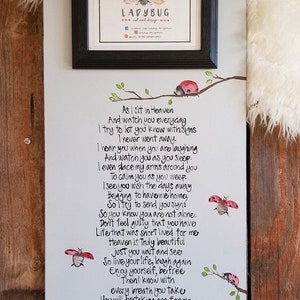 LADYBUG
As I sit in Heaven
And watch you everyday
I try to let you know with signs
I never went away
I hear you when you are laughing
And watch you as you sleep
I even place my arms around you
To calm you as you weep
I see you wish the days away
Begging to have me home
So I try to send you signs
So you know you are not alone
Don't feel guilty that you have
Life that was short lived for me
Heaven is truly beautiful
Just you wait and see
So live your life, laugh again
Enjoy yourself, be free
Then I know with
every breath you take